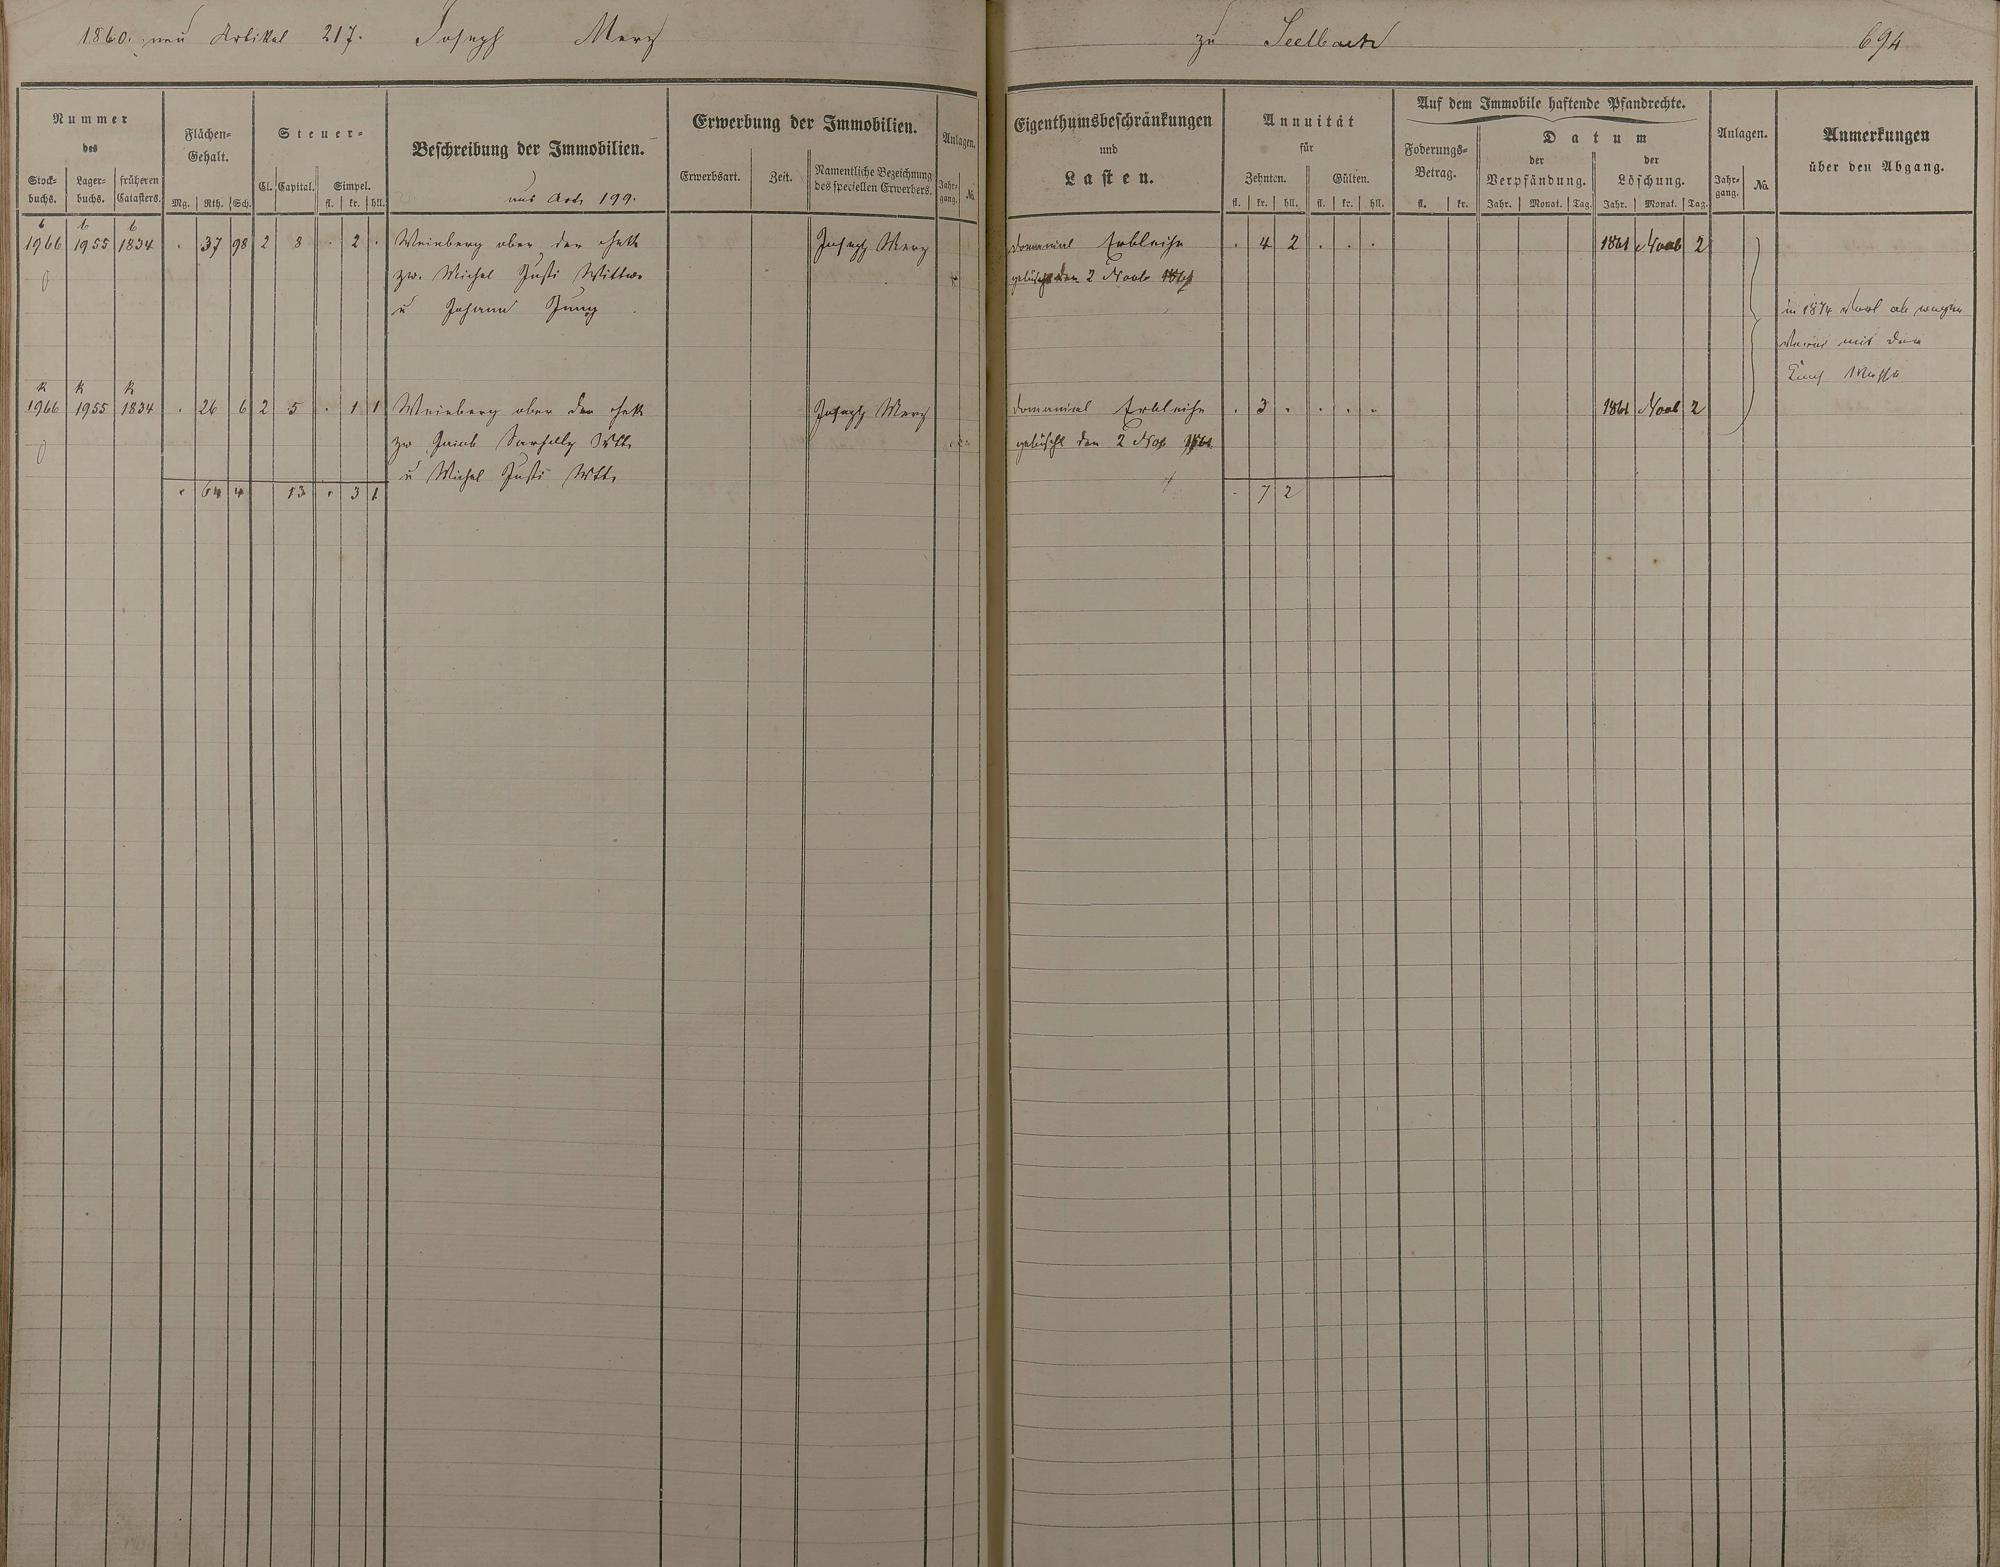 1860. neu Artikel 217. Joseph Merz
zu Seelbach 694
Nummer
des
Stock-
buchs.
Lager-
buchs.
früheren
Catasters.
Flächen-
Gehalt.
Mg. Rth. Sch.
Steuer-
Cl. Capital. Simpel.
fl. kr. hll.
Beschreibung der Immobilien.
aus Art. 199.
Erwerbung der Immobilien.
Erwerbsart. Zeit.
Namentliche Bezeichnung
des speciellen Erwerbers.
Anlagen.
Jahr-
gang.
No.
Eigenthumsbeschränkungen
und
Lasten.
Annuität
für
Zehnten. Gülten.
fl. kr. hll. fl. kr. hll.
Auf dem Immobile haftende Pfandrechte.
Foderungs-
Betrag.
fl. kr.
Datum
der
Verpfändung.
Jahr. Monat. Tag.
der
Löschung.
Jahr. Monat. Tag.
Anlagen.
Jahr-
gang.
No.
Anmerkungen
über den Abgang.
b b b
1966 1955 1834 . 37 98 2 8 . 2 . Weinberg ober der
zw. Michel Justi Wittwe
u Johann Jung
Joseph Merz
domanial Erbleihe . 4 2 . . . 1861 Novb 2
gelöscht den 2 Novb 1861
in 1874
mit
k k k
1966 1955 1834 . 26 6 2 5 . 1 1 Weinberg ober der
zw Jacob Wtb.
u Michel Justi Wtb.
Joseph Merz
domanial Erbleihe . 3 . . . . 1861 Novb 2
gelöscht den 2 Nov 1861
. 64 4 13 . 3 1
. 7 2